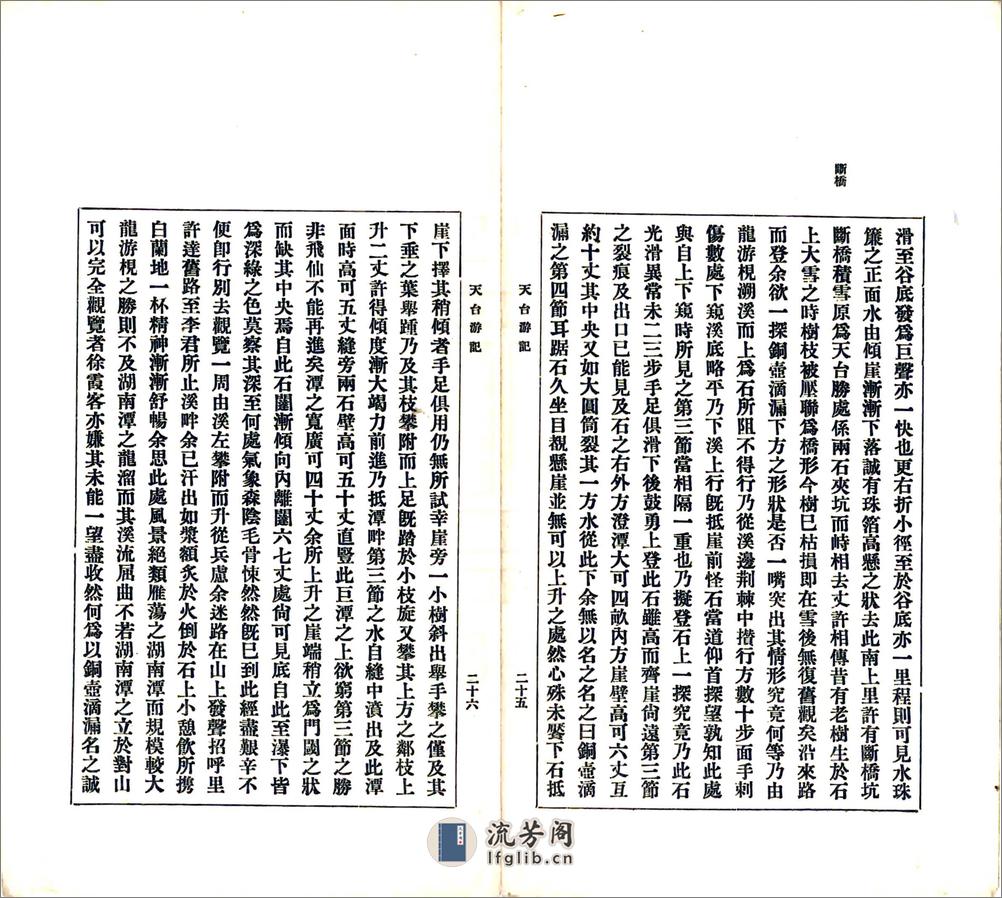 斷橋
滑至谷底發爲巨聲亦一快也更右折小徑至於谷底亦一里程則可見水珠
簾之正面水由傾崖漸漸下落誠有珠箔高懸之狀去此南上里許有斷橋坑
斷橋積雪原爲天台勝處係兩石夾坑而峙相去丈許相傳昔有老樹生於石
上大雪之時樹枝被壓聯爲橋形今樹已枯損即在雪後無復舊觀矣沿來路
而登余欲一探銅壺滴漏下方之形狀是否一嘴突出其情形究竟何等乃由
龍游梘溯溪而上爲石所阻不得行乃從溪邊荆棘中攢行方數十步面手刺
傷數處下窺溪底略平乃下溪上行既抵崖前怪石當道仰首探望孰知此處
與自上下窺時所見之第三節當相隔一重也乃擬登石上一探究竟乃此石
光滑異常未二三步手足俱滑下後鼓勇上登此石雖高而齊崖尙遠第三節
之裂痕及出口已能見及石之右外方澄潭大可四畝內方崖壁高可六丈亙
約十丈其中央又如大圓筒裂其一方水從此下余無以名之名之曰銅壺滴
漏之第四節耳踞石久坐目覩懸崖並無可以上升之處然心殊未饜下石抵
天台游記
二十五
天台游記
二十六
崖下擇其稍傾者手足俱用仍無所試幸崖旁一小樹斜出舉手攀之僅及其
下垂之葉舉踵乃及其枝攀附而上足既踏於小枝旋又攀其上方之鄰枝上
升二丈許得傾度漸大竭力前進乃抵潭畔第三節之水自縫中濆出及此潭
面時高可五丈縫旁兩石壁高可五十丈直豎此巨潭之上欲窮第三節之勝
非飛仙不能再進矣潭之寬廣可四十丈余所上升之崖端稍立爲門閾之狀
而缺其中央焉自此石闥漸傾向內離闥六七丈處尙可見底自此至瀑下皆
爲深綠之色莫察其深至何處氣象森陰毛骨悚然然既已到此經盡艱辛不
便即行別去觀覽一周由溪左攀附而升從兵慮余迷路在山上發聲招呼里
許達舊路至李君所止溪畔余已汗出如漿額炙於火倒於石上小憩飲所携
白蘭地一杯精神漸漸舒暢余思此處風景絕類雁蕩之湖南潭而規模較大
龍游梘之勝則不及湖南潭之龍溜而其溪流屈曲不若湖南潭之立於對山
可以完全觀覽者徐霞客亦嫌其未能一望盡收然何爲以銅壺滴漏名之誠
流芳阁
lfglib.cn